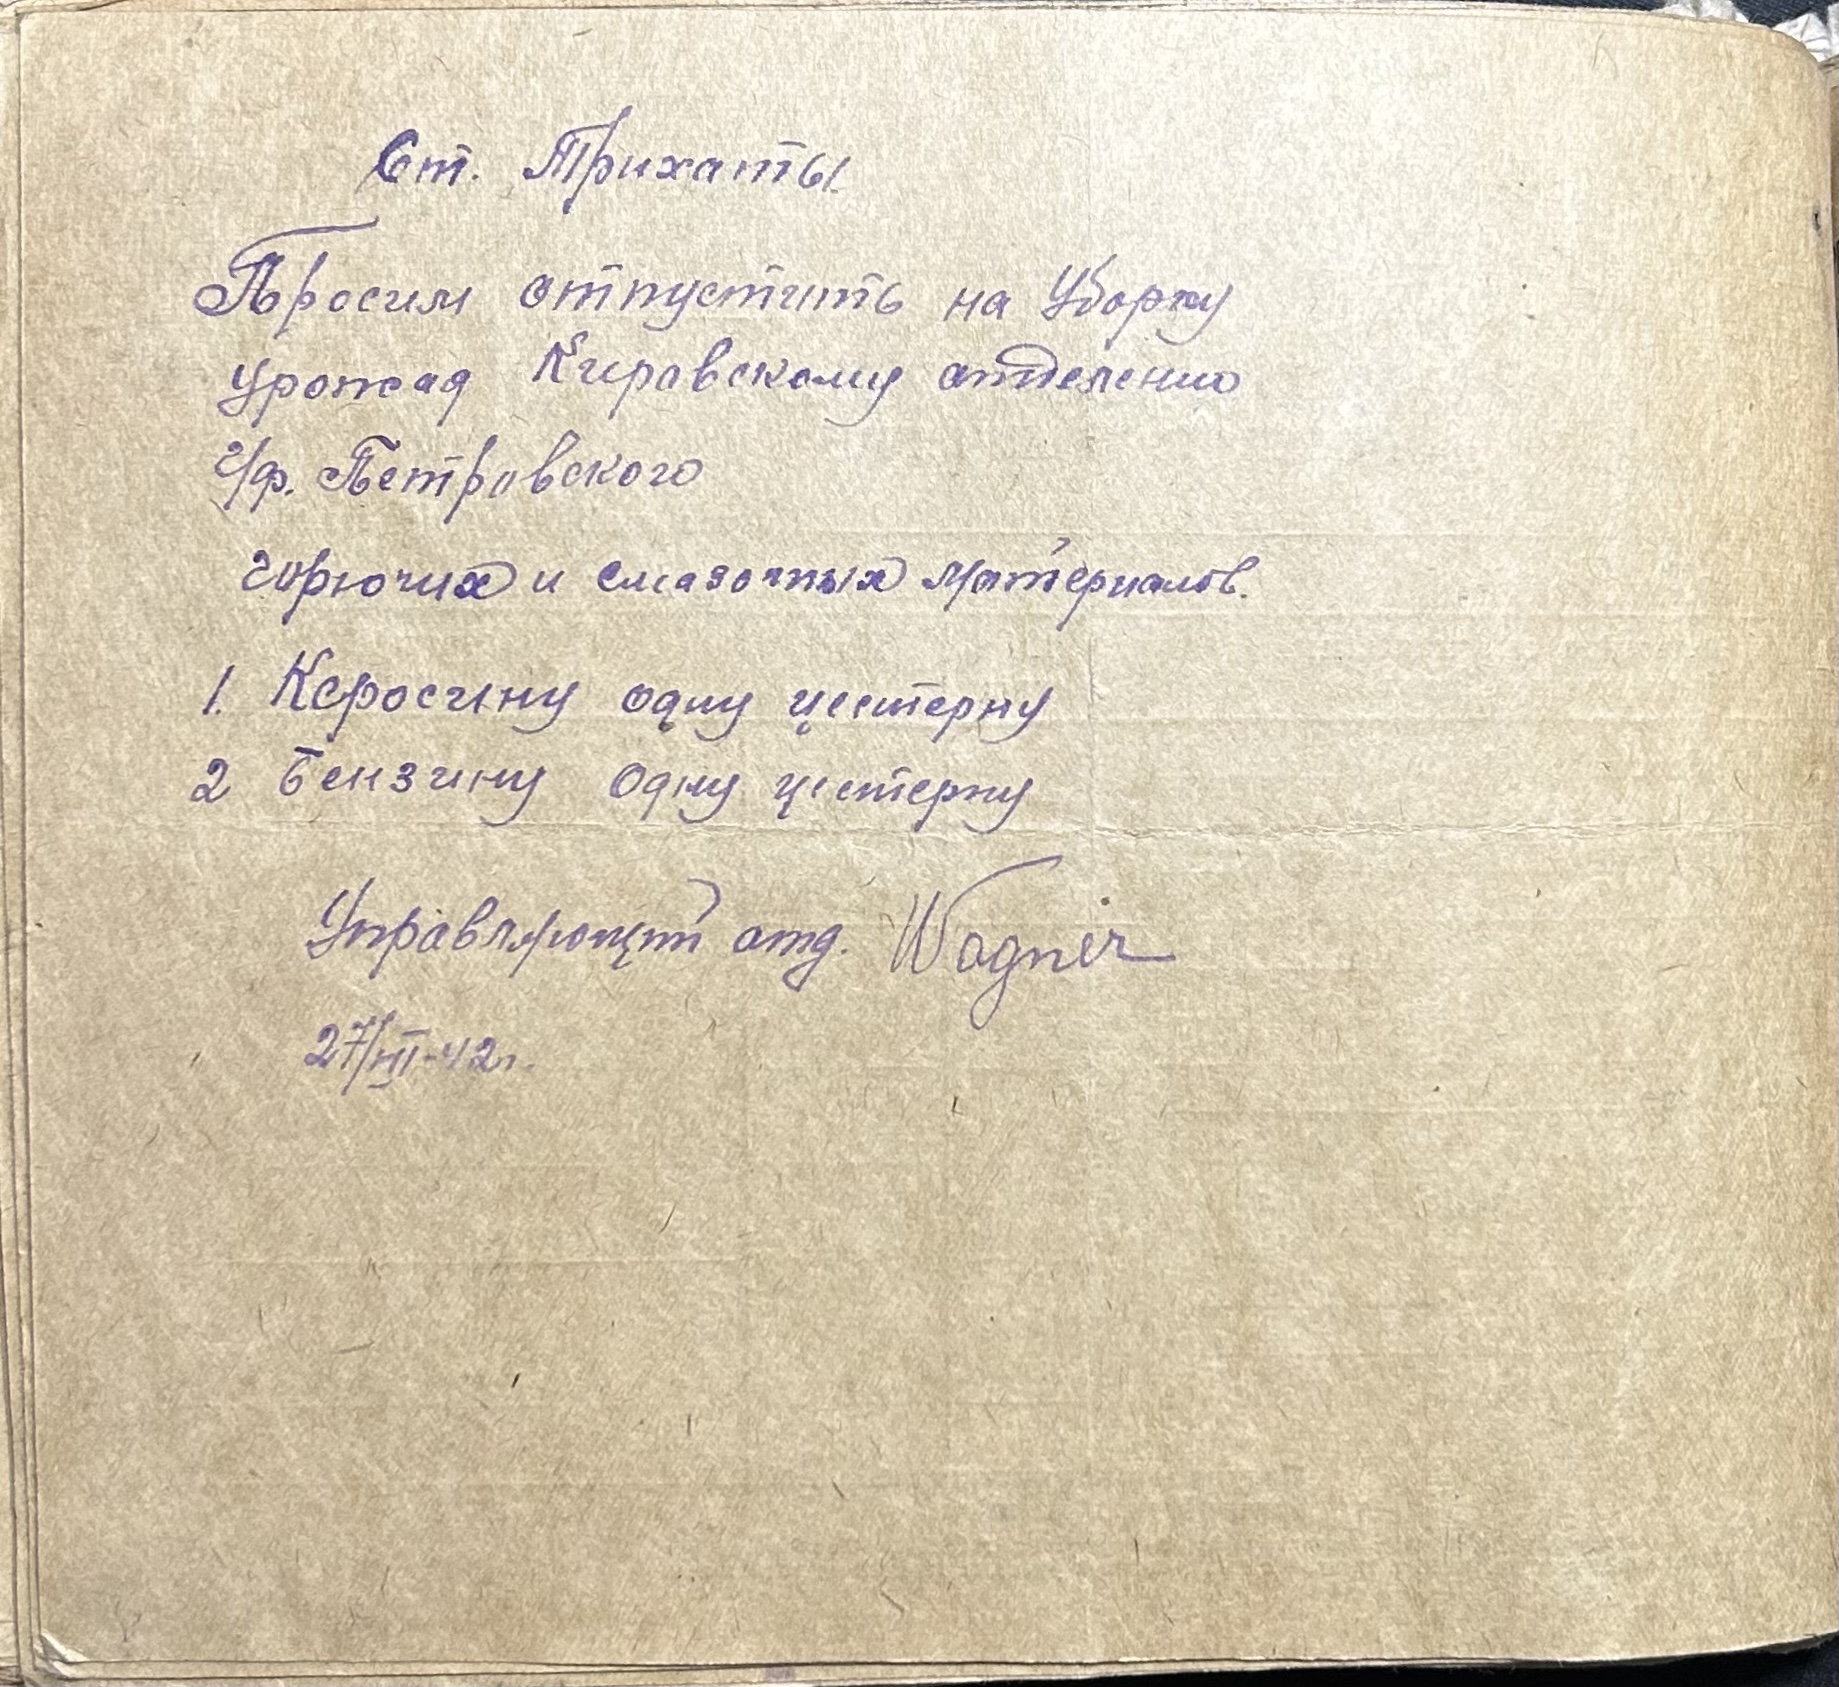 Ст. Трихаты.
Просим отпустить на Уборку
урожая Кировскому отделению
г/ф. Петровского
горючих и смазочных материалов.
1. Керосину одну цистерну
2 Бензину одну цистерну
Управляющий отд. Wagner
27/VII-42г.